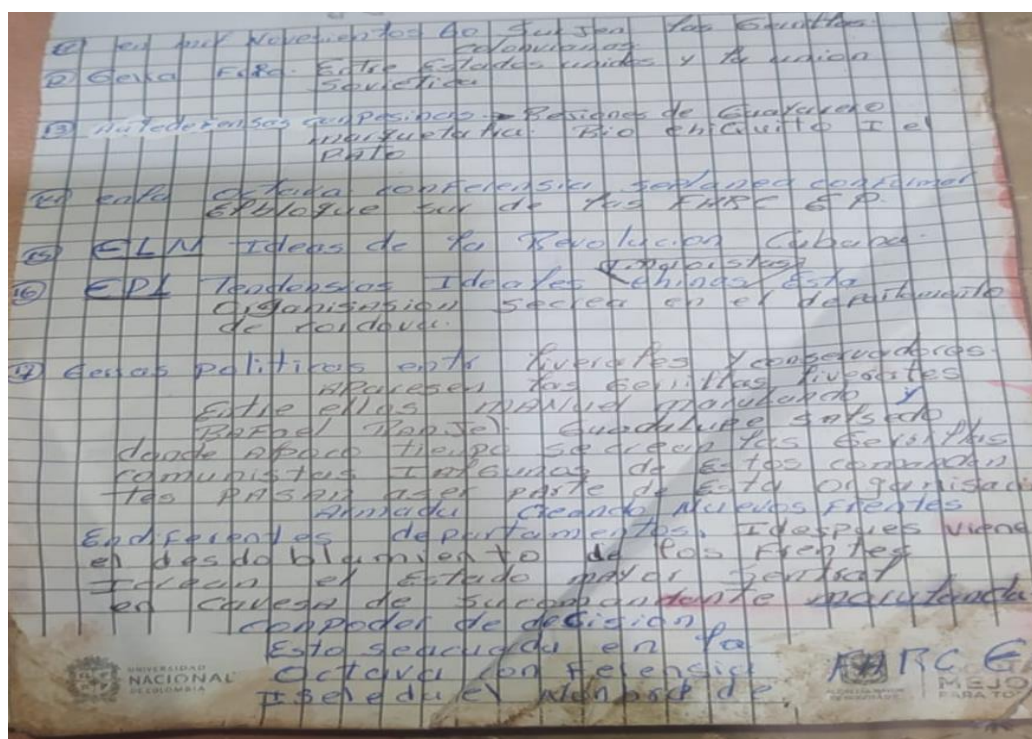 en mil Novesientos 60 Surjen las Guerillas
colonvianas
Gerra FRRa. Entre Estados unidos y la union
Sovietica
13 Autedefensas canpesinas Resiones de Guayavero
marquetalia. Rio chiquito I el
PATO
enla octava conferensia seplanea conformar
El bloque sur de las FARC EP.
15 ELN Ideas de la Revolucion Cubana.
maoistas
16 EPL Tendensias Ideales chinas Esta
organisasion secrea en el departamento
de cordova.
Gerras politicas entr liverales y conservadores.
Aparesen las Gerillas liverales
Entre ellas MANuel marulando y
RAFael RanJel. Guadalupe Salsedo
donde Apoco tienpo se crean las Gerrillas
comunistas I Algunos de Estos comandan
tes PASAN aser parte de Esta organisaci
Armada Creando Nuevos Frentes
Endiferentes departamentos, Idespues viene
el desdoblamiento de los Frentes
Icrean el Estado mayor Sentral
en Cavesa de sucomandante marulanda
conpoder de decisión
Esto seacuerda en la
Octava con Ferensia
Isele da el Nonbre de FARC E
UNIVERSIDAD
NACIONAL
DE COLOMBIA
ALCALDÍA MAYOR
DE BOGOTÁ D.C.
MEJO
PARA TO